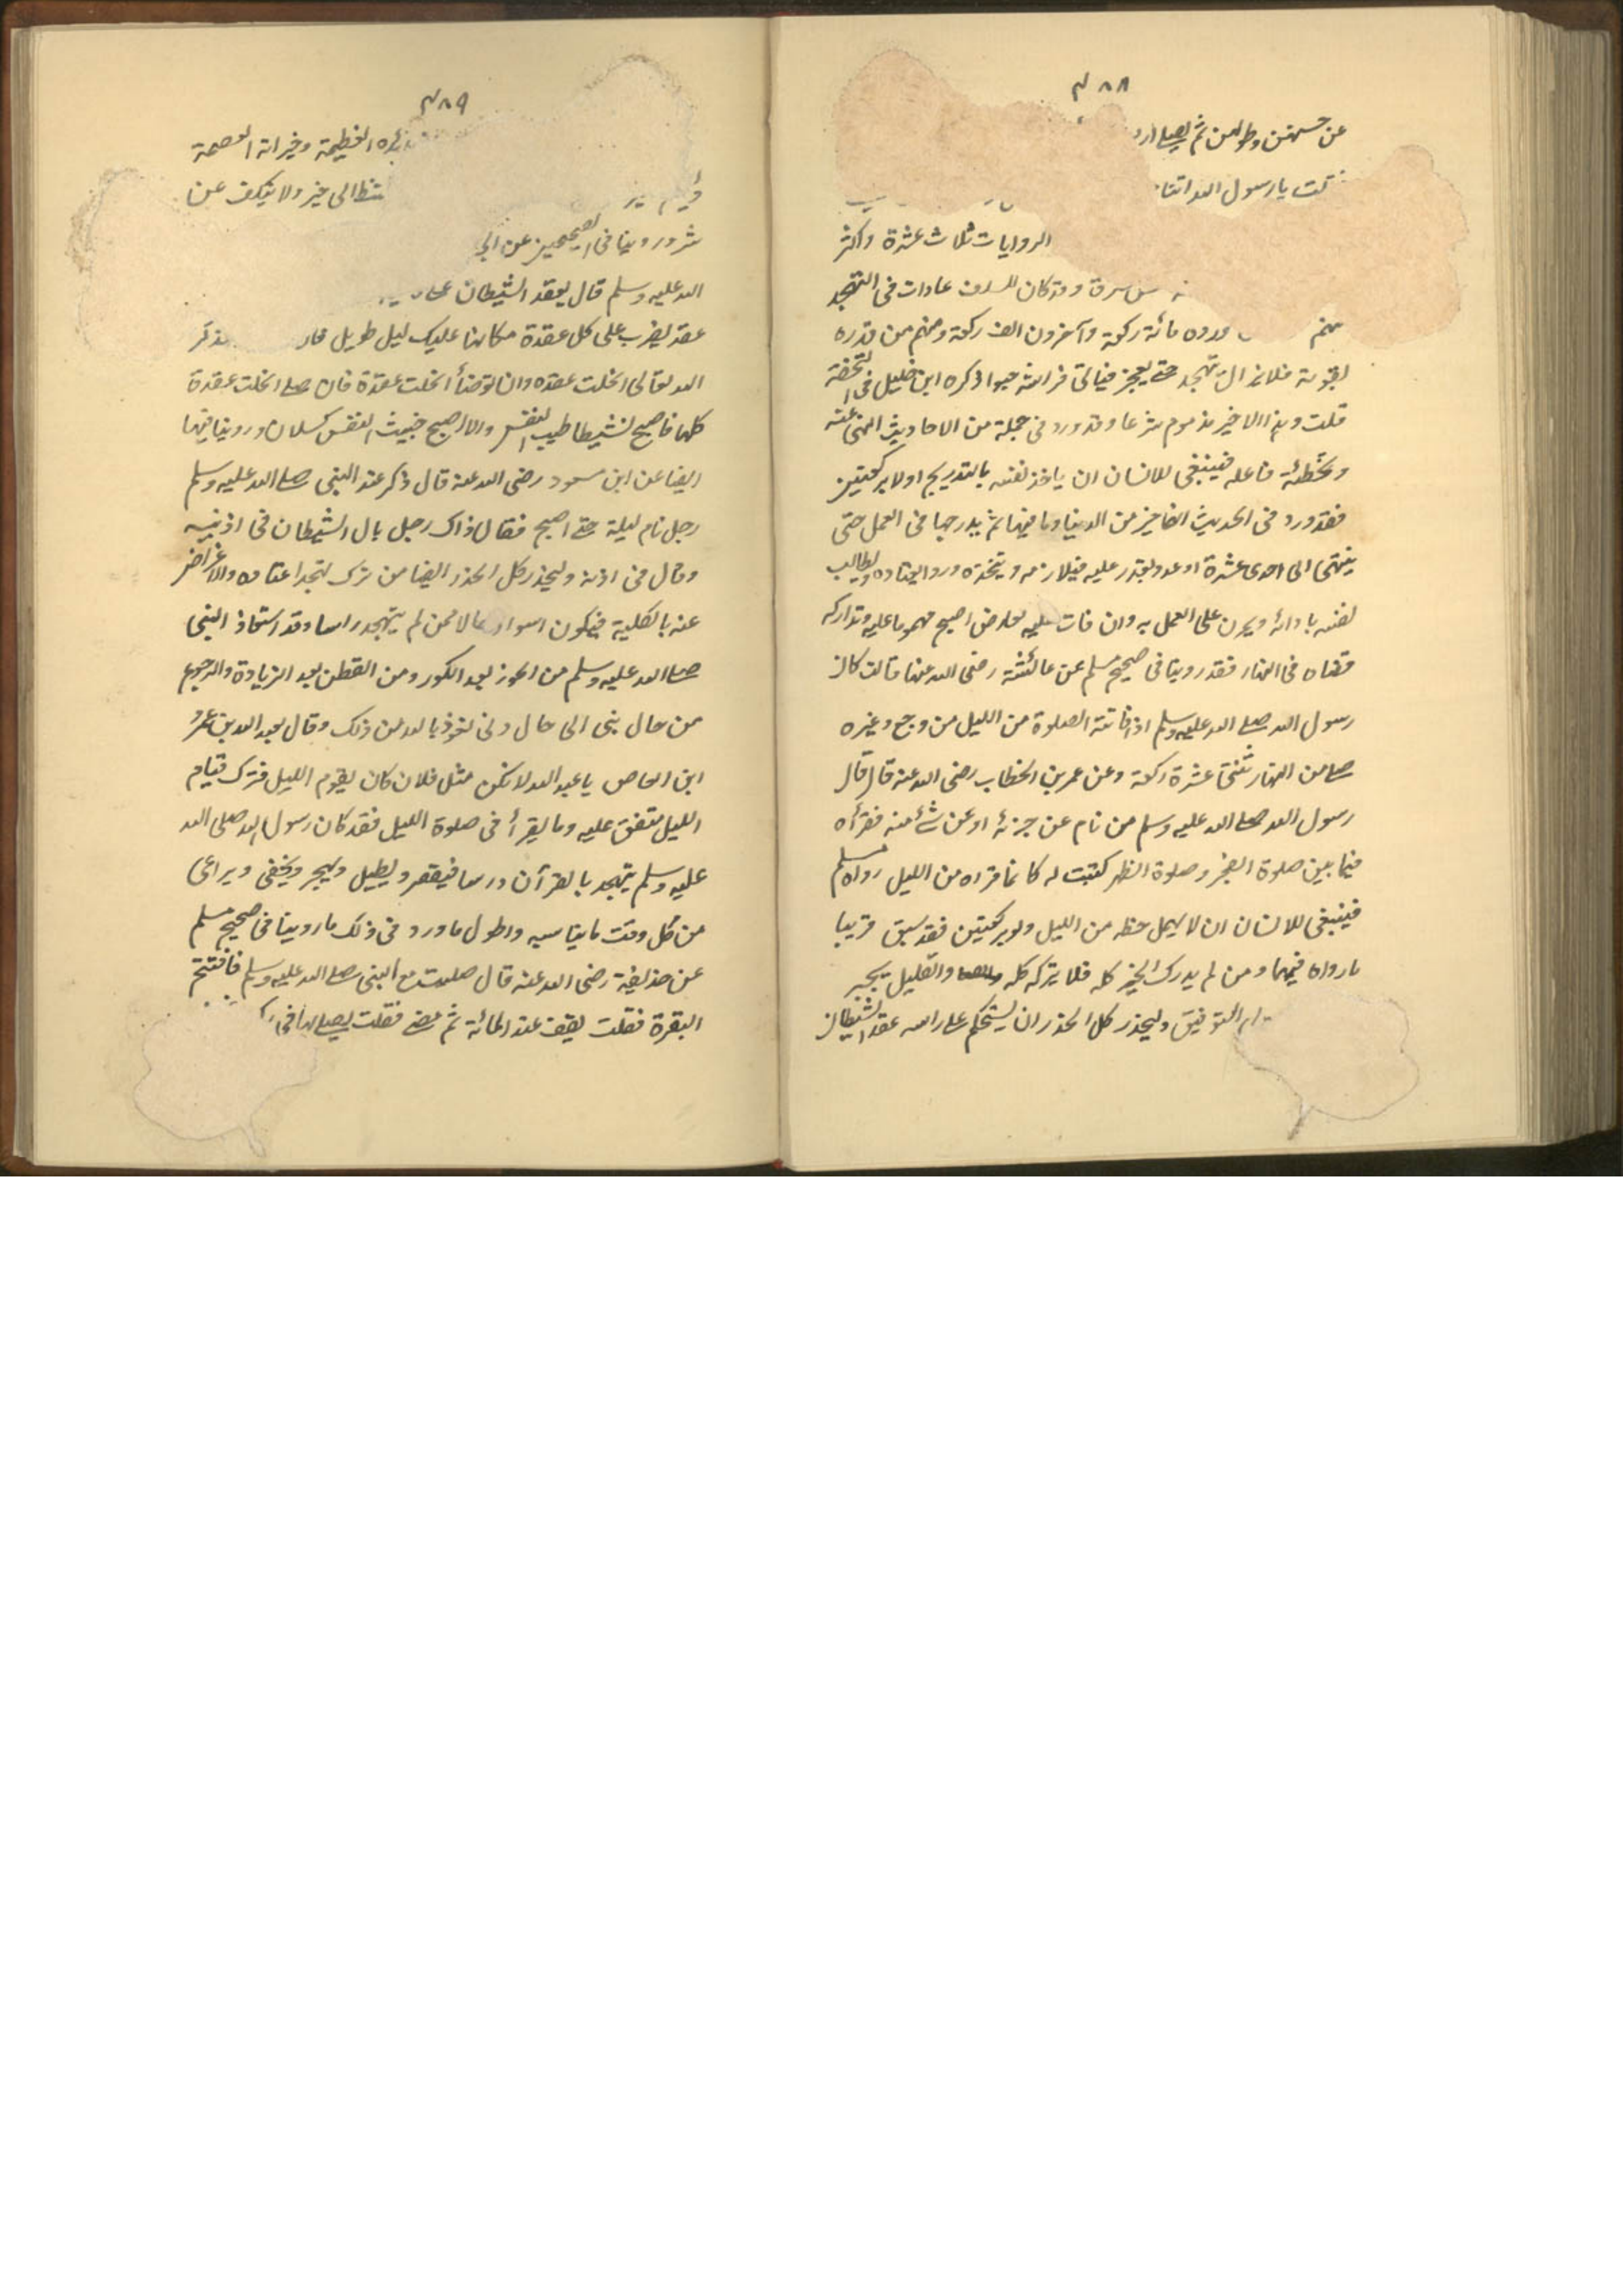 ٣٨٨
عن حسنهن وطولهن ثم يصلي
قلت يا رسول الله
الروايات ثلاث عشرة واكثر
وقد كان للسلف عادات فى التهجد
منهم ورده مائة ركعة وآخرون الف ركعة ومنهم من قدره
بقومة فلا يزال يتهجد حتى يعجز فياتى فراشه حبوا ذكره ابن خليل فى التحفة
قلت وهذا الاخير مذموم شرعا وقد ورد فى جملة من الاحاديث النهى عنه
وتخطئة فاعله فينبغى للانسان ان ياخذ نفسه بالتدريج اولا بركعتين
فقد ورد فى الحديث انها خير من الدنيا وما فيها ثم يتدرج بها فى العمل حتى
ينتهى الى احدى عشرة او عدد يقدر عليه فيلازمه ويتخذه وردا يعتاده ويطالب
نفسه بادائه ويمرن على العمل به وان فات عليه لعارض اصبح مهموما عليه وتداركه
قضاه فى النهار فقد روينا فى صحيح مسلم عن عائشة رضى الله عنها قالت كان
رسول الله صلى الله عليه وسلم اذا فاتته الصلوة من الليل من وجع وغيره
صلى من النهار ثنتى عشرة ركعة وعن عمر بن الخطاب رضى الله عنه قال قال
رسول الله صلى الله عليه وسلم من نام عن حزبه او عن شئ منه فقرأه
فيما بين صلوة الفجر وصلوة الظهر كتبت له كانما قراه من الليل رواه مسلم
فينبغى للانسان ان لا يهمل حظه من الليل ولو بركعتين فقد سبق قريبا
ما رواه فيهما ومن لم يدرك الخير كله فلا يتركه كله والقليل يجبر
التوفيق وليحذر كل الحذر ان يستحكم على راسه عقد الشيطان
٣٨٩
العظيمة وخيراته العميمة
ينشط الى خير ولا ينكف عن
شر وروينا فى الصحيحين عن ابى
الله عليه وسلم قال يعقد الشيطان على
عقد يضرب على كل عقدة مكانها عليك ليل طويل فذكر
الله تعالى انحلت عقده وان توضأ انحلت عقدة فان صلى انحلت عقدة
كلها فاصبح نشيطا طيب النفس والا اصبح خبيث النفس كسلان وروينا فيهما
ايضا عن ابن مسعود رضى الله عنه قال ذكر عند النبى صلى الله عليه وسلم
رجل نام ليلة حتى اصبح فقال ذاك رجل بال الشيطان فى اذنيه
وقال فى اذنه وليحذر كل الحذر ايضا من ترك تهجد اعتاده والاعراض
عنه بالكلية فيكون اسوا حالا ممن لم يتهجد راسا وقد استعاذ النبى
صلى الله عليه وسلم من الحور بعد الكور ومن القطن بعد الزيادة والرجوع
من حال بنى الى حال دنى نعوذ بالله من ذلك وقال لعبد الله بن عمرو
ابن العاص يا عبد الله لا تكن مثل فلان كان يقوم الليل فترك قيام
الليل متفق عليه وما يقرأ فى صلوة الليل فقد كان رسول الله صلى الله
عليه وسلم يتهجد بالقرآن درسا فيقصر ويطيل ويجهر ويخفى ويراعى
من كل وقت ما يناسبه واطول ما ورد فى ذلك ما روينا فى صحيح مسلم
عن حذيفة رضى الله عنه قال صليت مع النبى صلى الله عليه وسلم فافتتح
البقرة فقلت يقف عند المائة ثم مضى فقلت يصلى بها فى